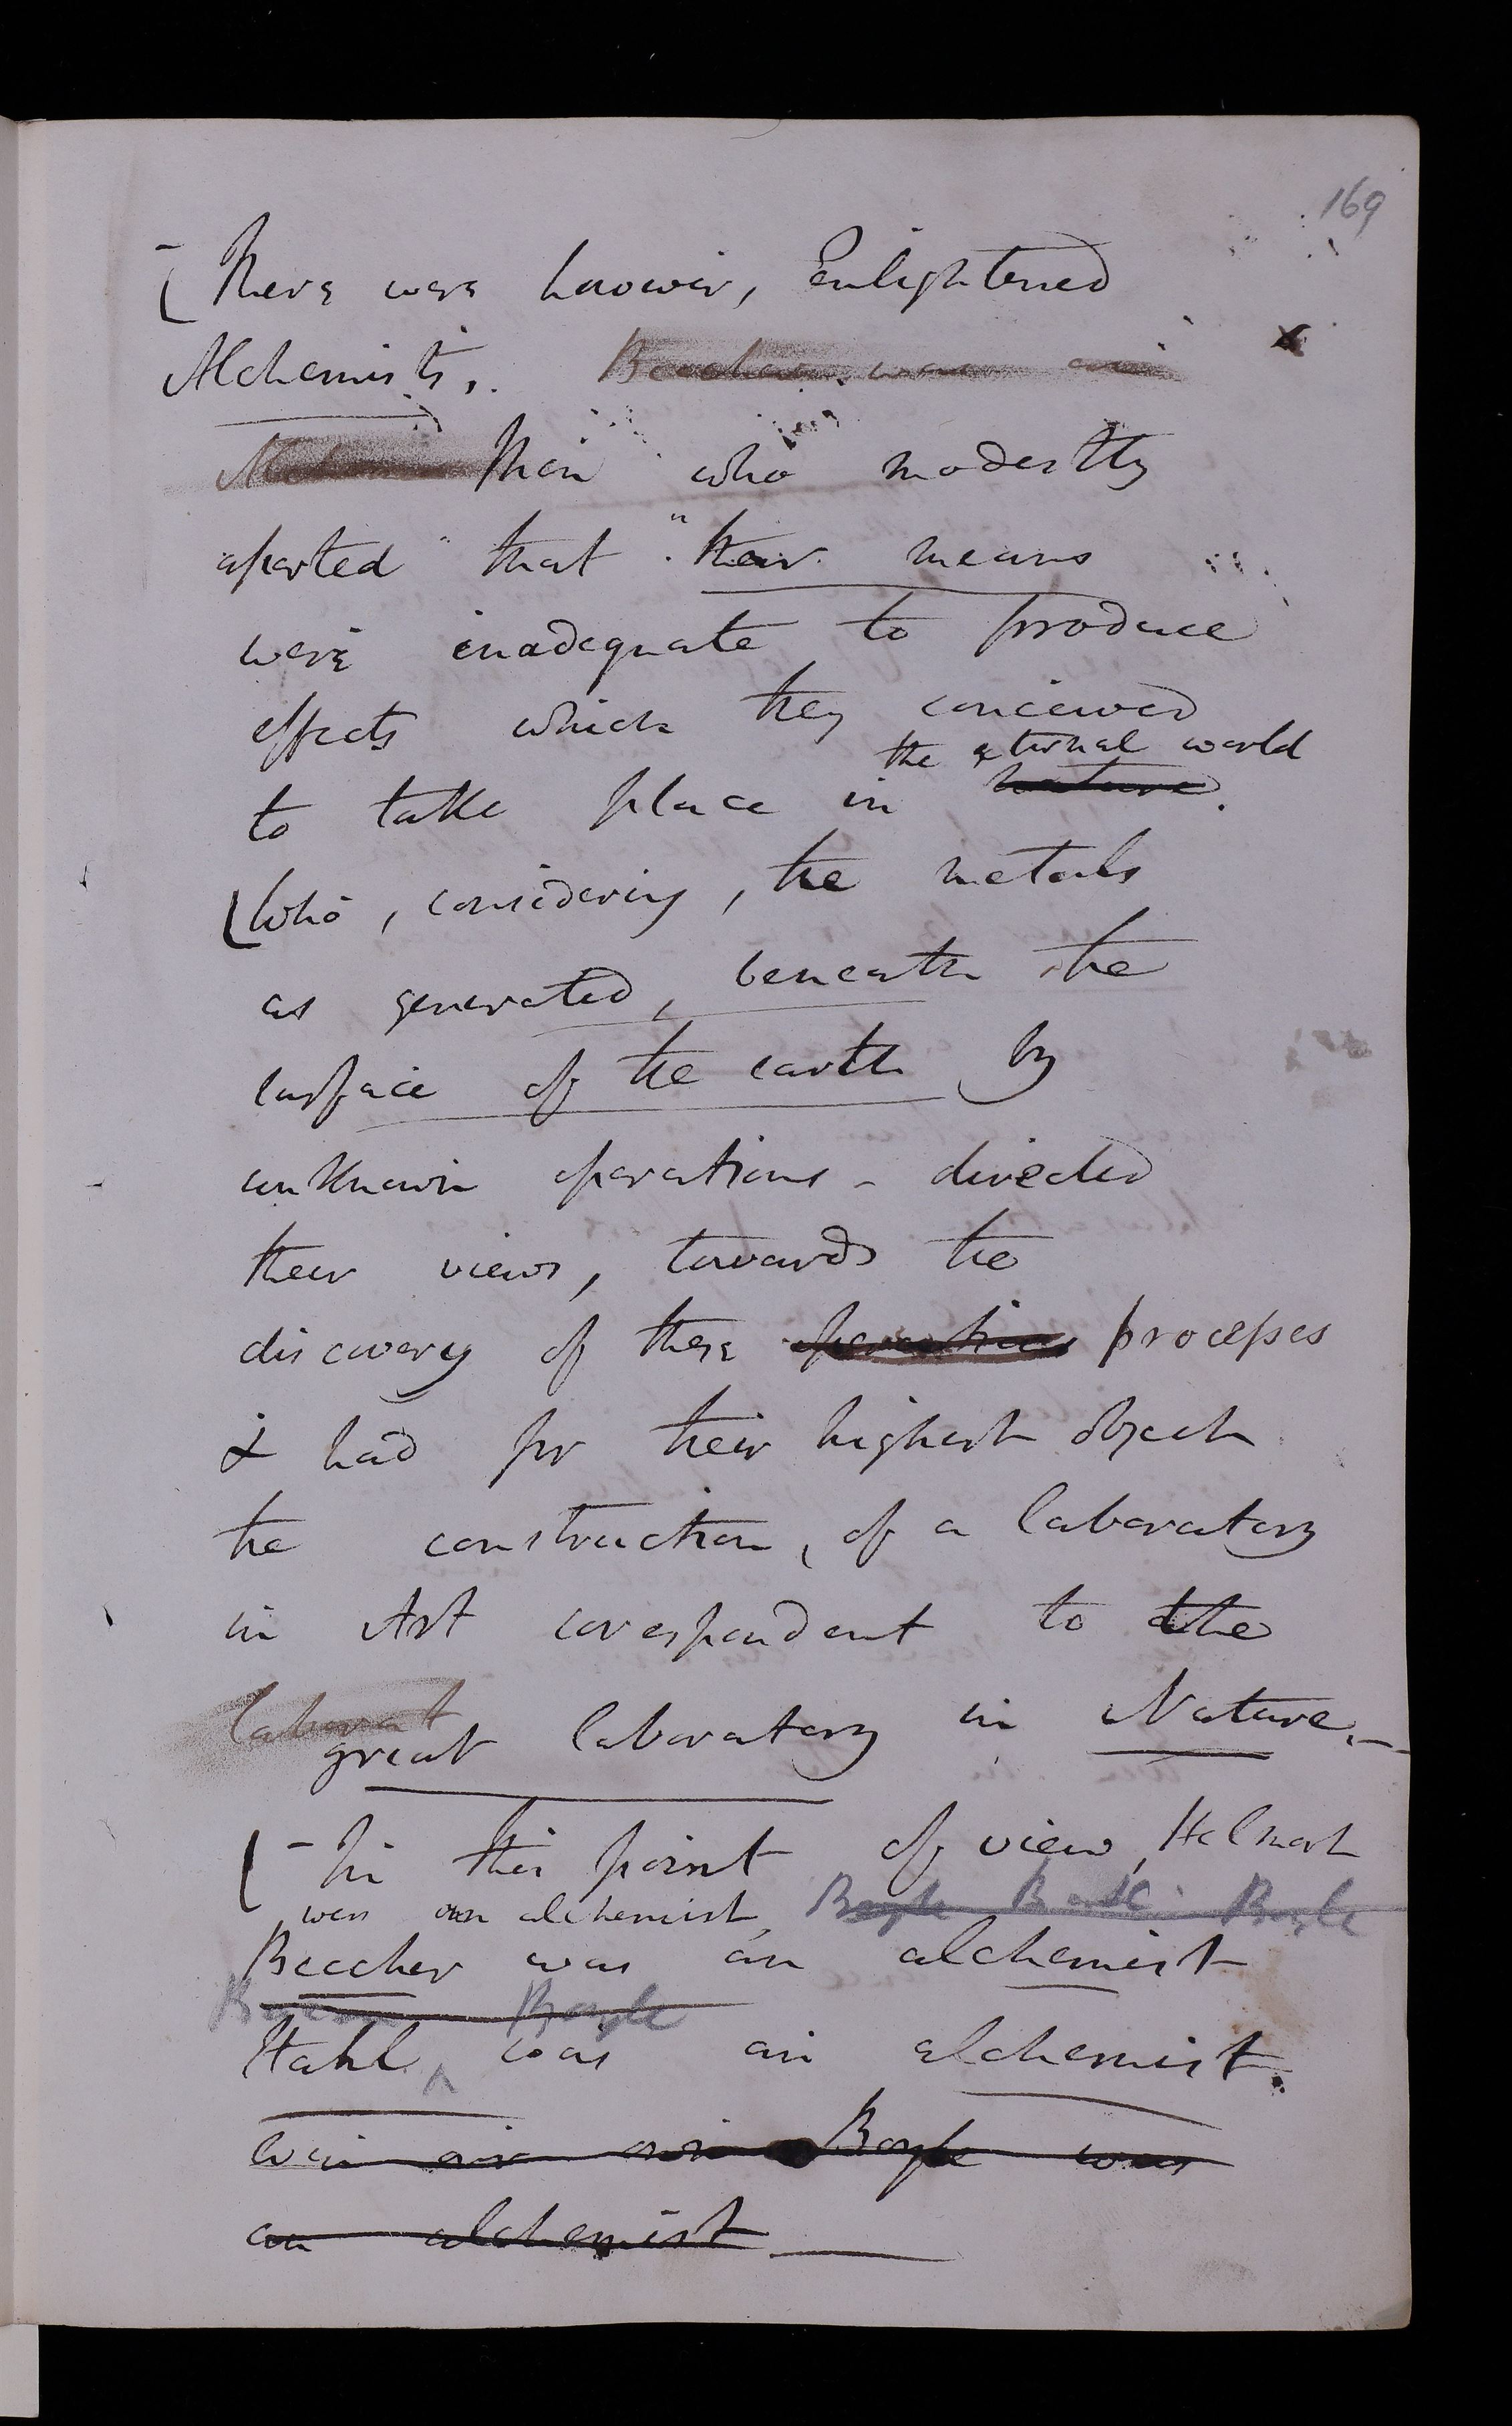 169
There were however, Enlightened
Alchemists,. Beccher was an
Alchemis Men who modestly
asserted "that "their means
were inadequate to produce
effects which they conceived
the external world
to take place in nature.
Who, considering, the metals
as generated, beneath the
surface of the earth by
unknown operations - directed
their views, towards the
discovery of these operations processes
& had for their highest object
the construction, of a laboratory
in Art correspondent to the
laborat
great laboratory in Nature. -
- In this point of view, Helmont
was an alchemist, Boyle Boyle
Beccher was an alchemist
Boyle
Stahl, was an alchemist.
was Boyle was
an alchemist